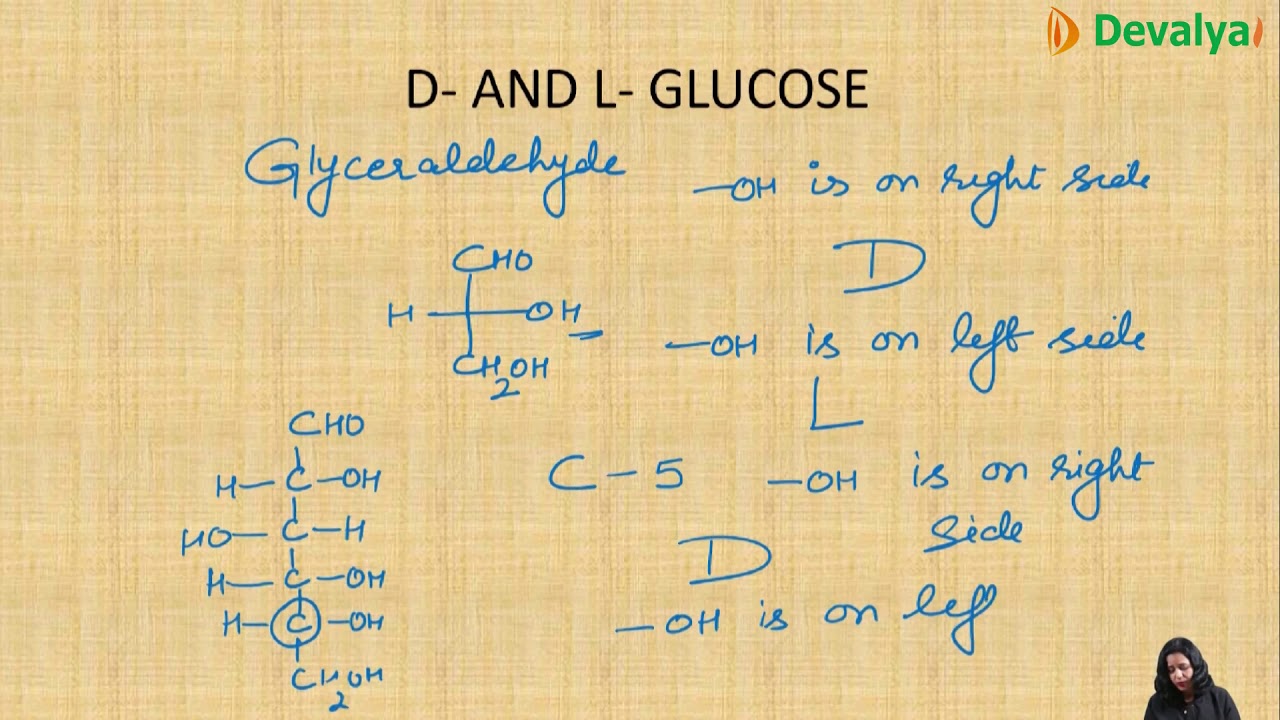 Devalya
D- AND L- GLUCOSE
Glyceraldehyde
—OH is on right side
CHO
D
H — OH
—OH is on left side
CH2OH
L
CHO
C-5 —OH is on right
H—C—OH
side
HO—C—H
D
H—C—OH
—OH is on left
H—C—OH
CH2OH